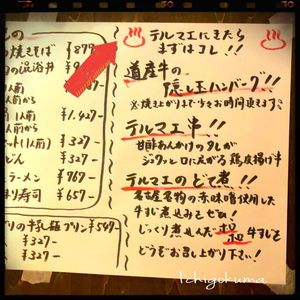 テルマエにきたら
まずはコレ!!
道産牛の
隠し玉ハンバーグ!!
※焼き上がりまで少々お時間頂きます
テルマエ串!!
甘酢あんかけのタレが
ジュワッと口に広がる鶏皮揚げ串
テルマエのどて煮!!
名古屋名物の赤味噌使用した
牛すじ煮込みをどうぞ!!
じっくり煮込んだ
牛すじを
どうぞお召し上がり下さい!
焼きそば ¥877-
の混浴丼
人前
人前から
¥1,427-
人前
人前から
¥327-
どん ¥327-
ラーメン ¥767-
まり寿司 ¥657-
りの牛乳瓶プリン ¥547-
¥327-
¥327-
Ichigokuma